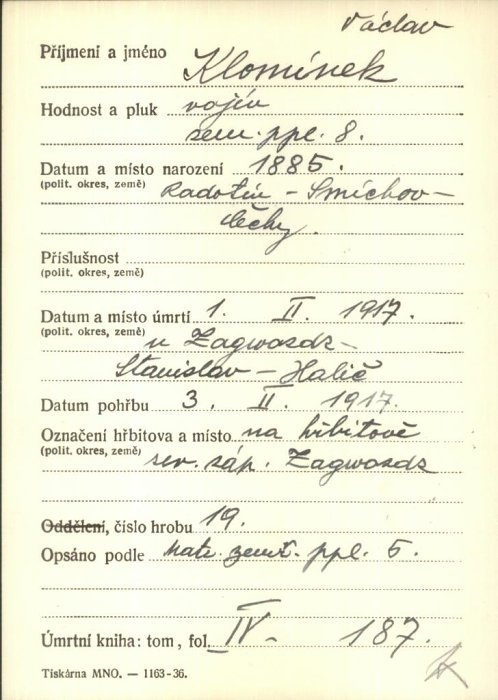 Václav
Příjmení a jméno Klomínek
Hodnost a pluk vojín
zem. ppl. 8.
Datum a místo narození 1885.
(polit. okres, země) Radotín - Smíchov -
Čechy.
Příslušnost
(polit. okres, země)
Datum a místo úmrtí 1. II. 1917.
(polit. okres, země) u Zagwosdz -
Stanislav - Halič
Datum pohřbu 3. II. 1917.
Označení hřbitova a místo na hřbitově
(polit. okres, země) sev. záp. Zagwosdz
Oddělení, číslo hrobu 19.
Opsáno podle Matr. zemř. ppl. 5.
Úmrtní kniha: tom, fol. IV - 187.
Tiskárna MNO. — 1163-36.